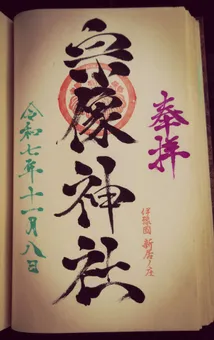 奉拝
宗像神社
伊豫國 新居ノ庄
令和七年十一月八日